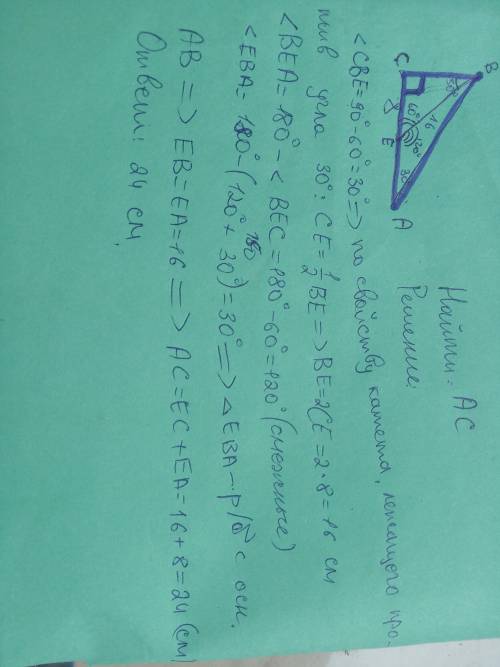 B
30°
16
C
60°
120°
30°
8
E
A
Найти: AC
Решение:
<CBE=90°-60°=30° => по свойству катета, лежащего про-
тив угла 30°: CE=1/2BE => BE=2CE=2·8=16 см
<BEA=180°-<BEC=180°-60°=120° (смежные)
<EBA=180°-(120°+30°)=30° => △EBA-р/б с осн.
AB => EB=EA=16 => AC=EC+EA=16+8=24 (см)
Ответ: 24 см.